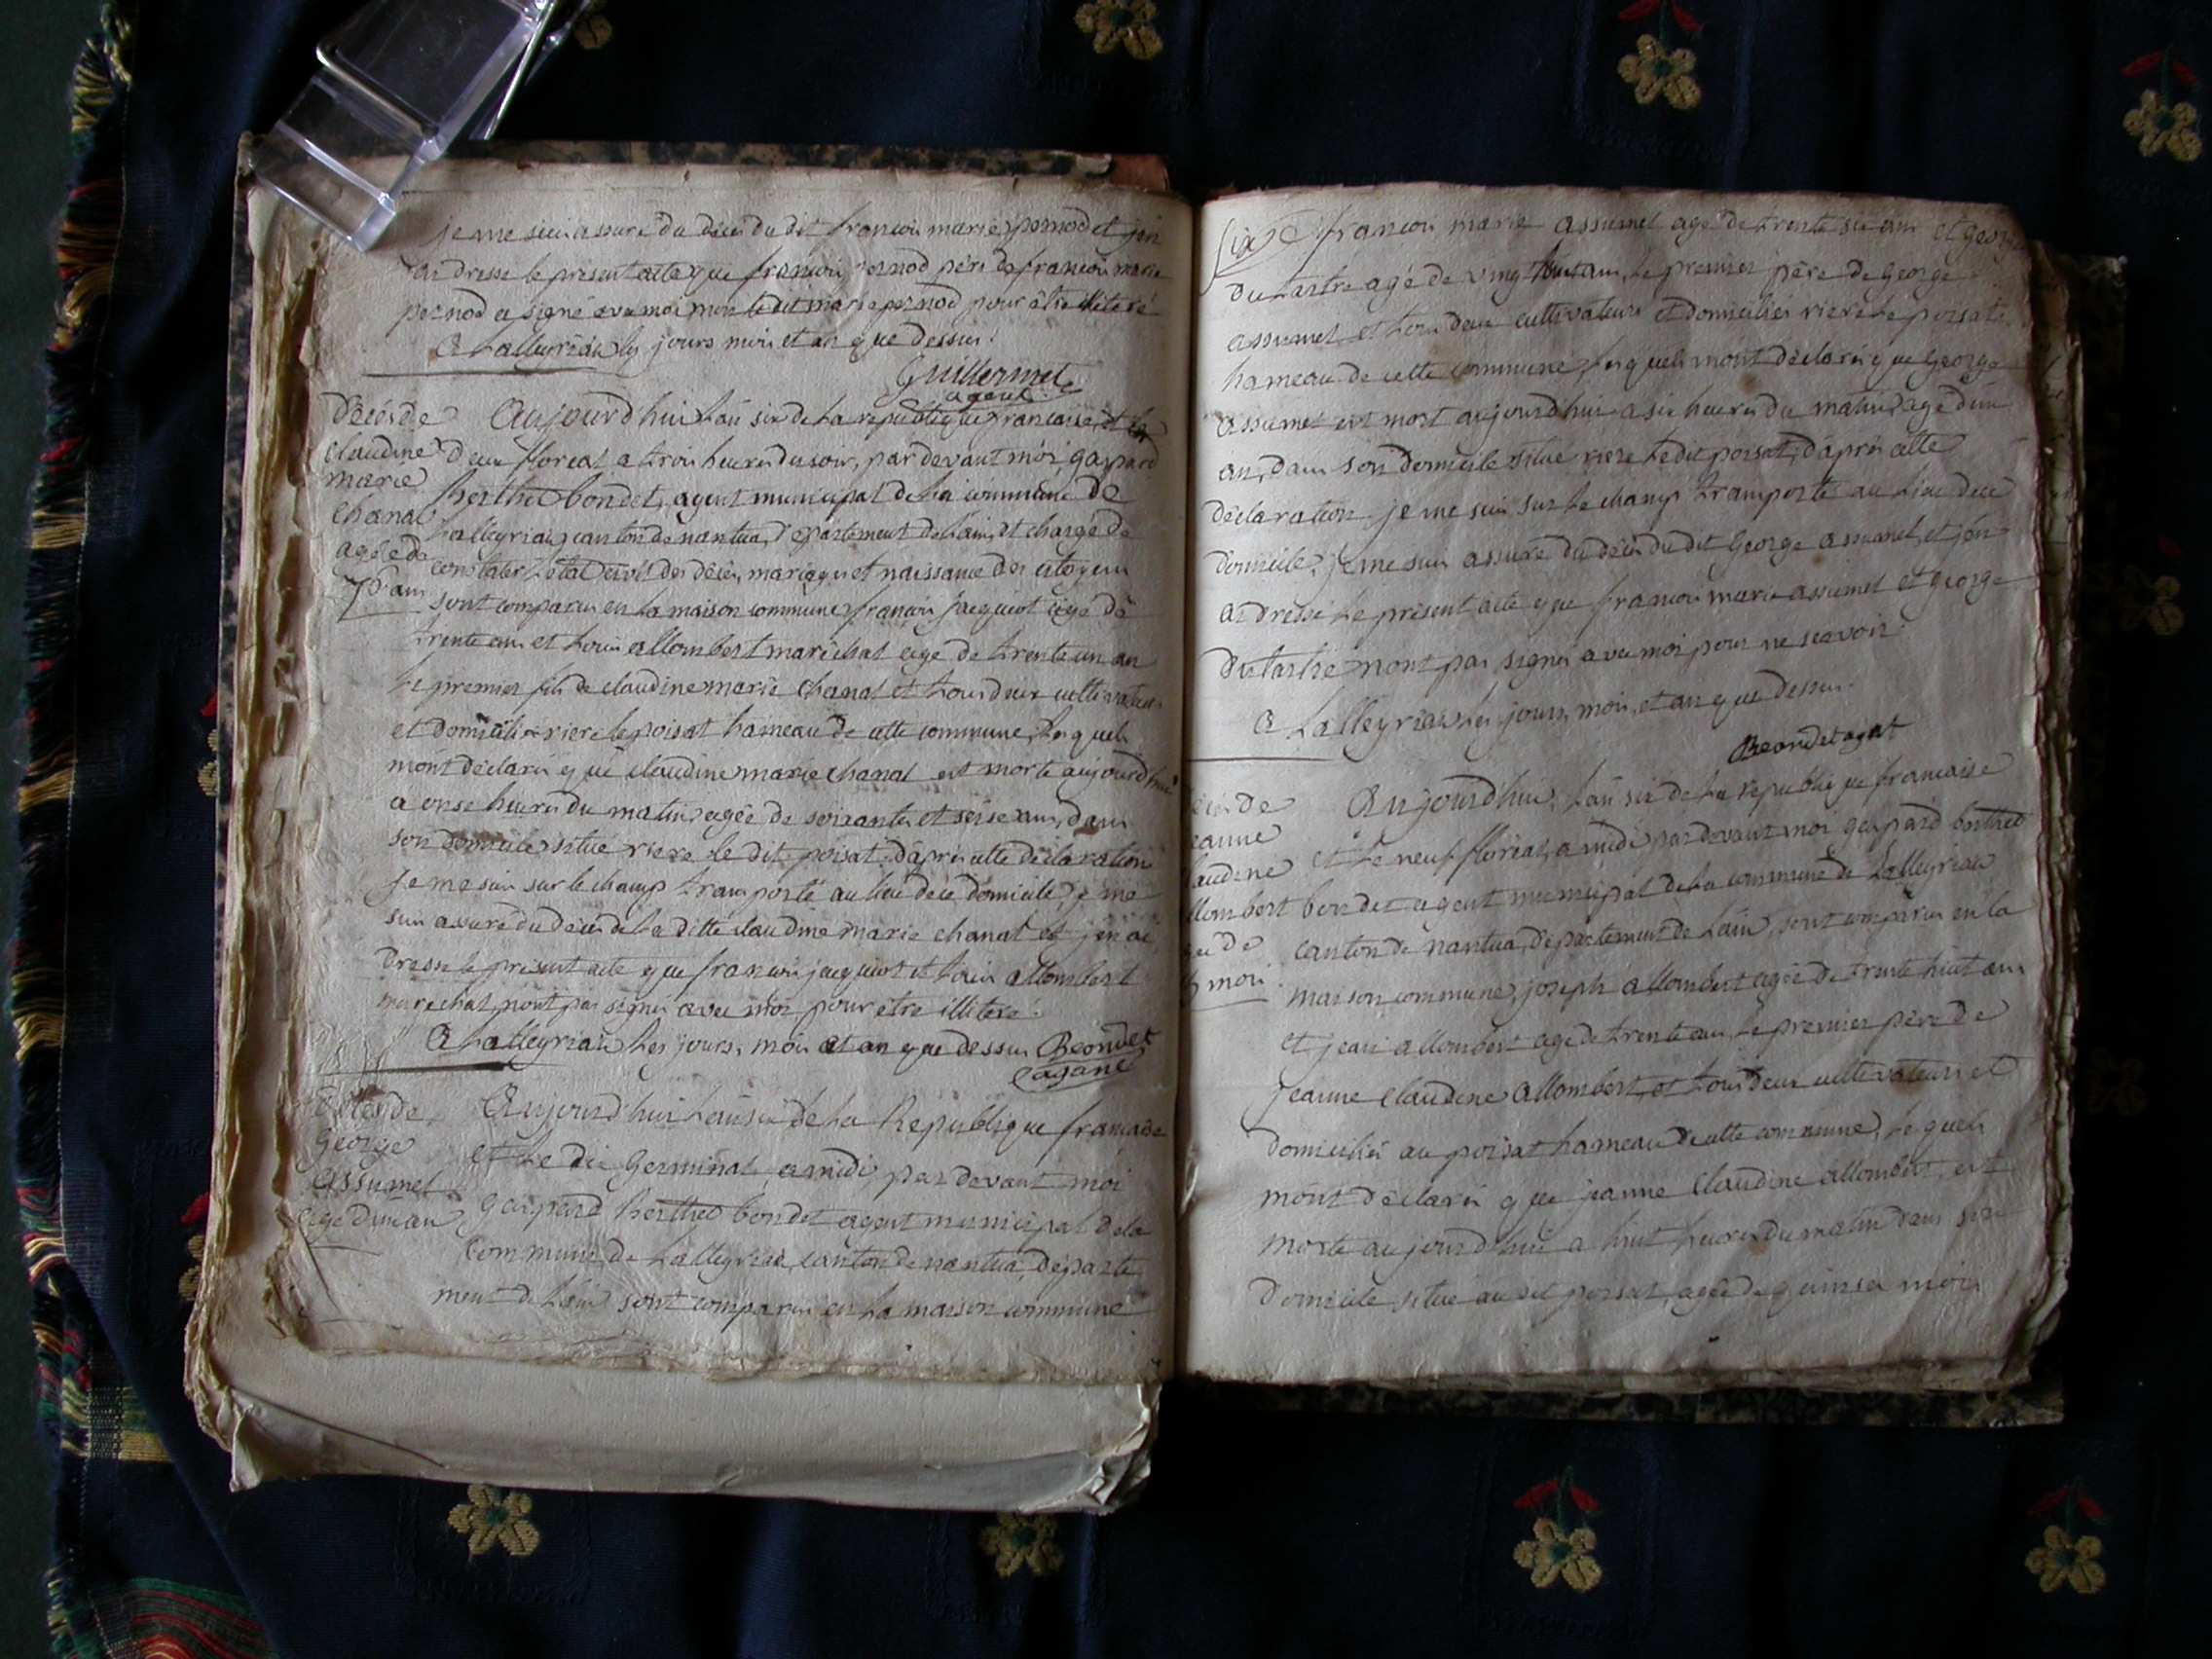 je me suis assuré du décès du dit francois marie pernod et jen
ai dresse le présent acte que francois pernod père de francois marie
pernod a signé avec moi non le dit marie pernod pour être illiteré
a Lalleyriat les jours mois et an que dessus.
Guillermet
agent
Décès de
claudine
marie
chanal
agée de
76 ans
Aujourd'hui Lan six de la republique francaise et le
deux floreal a trois heures du soir, par devant moi gaspard
berthet bondet, agent municipal de la commune de
Lalleyriat canton de nantua, departement de Lain, et chargé de
constater Létat civil des décès, mariages et naissance des citoyens
sont comparus en la maison commune francois jacquiot agé de
trente ans et Louis allombert maréchal agé de trente un an
le premier fils de claudine marie chanal et tous deux cultivateurs
et domiciliés riere le poisat hameau de cette commune, les quels
mont déclarés que claudine marie chanal est morte aujourdhui
a onse heures du matin agée de soixante et seise ans, dans
son domicile situé riere le dit poisat, d'après cette déclaration
je me suis sur le champ transporté au lieu de ce domicile, je me
suis assuré du décès de la ditte claudine marie chanal et jen ai
dresse le présent acte que francois jacquiot et Louis allombert
marechal nont pas signés avec moi pour être illiteré.
A Lalleyriat Les jours, mois et an que dessus Beondet
agane
Décès de
George
assumel
agé dun an
Aujourd'hui Lan six de La Republique francaise
et Le dix Germinal, a midi par devant moi
gaspard berthet bondet agent municipal de la
commune de Lalleyriat, canton de nantua, départe
ment de Lain sont comparus en La maison commune
francois marie assumel agé de trente six ans et george
dutartre agé de vingt huit ans, le premier père de George
assumel, et tous deux cultivateurs et domiciliés riere le poisat
hameau de cette commune, les quels mont déclarés que George
assumel est mort aujourdhui a six heures du matin, agé dun
an, dans son domicile situé riere le dit poisat, d'après cette
déclaration je me suis sur le champ transporté au Lieu de ce
domicile, je me suis assuré du décès du dit George assumel, et jen
ai dressé le présent acte que francois marie assumel et George
dutartre nont pas signés avec moi pour ne scavoir
a Lalleyriat les jours, mois, et an que dessus.
Beondet agant
de
eanne
laudine
llombert
de
mois
Aujourd'hui, Lan six de La republique francaise
et Le neuf floréal, a midi par devant moi gaspard berthet
bondet agent municipal de La commune de Lalleyriat
canton de nantua, département de Lain, sont comparus en la
maison commune, joseph allombert agée de trente huit ans
et jean allombert agé de trente ans, le premier père de
Jeanne Claudine allombert, et tous deux cultivateurs et
domiciliés au poisat hameau de cette commune, les quels
mont déclarés que jeanne Claudine allombert, est
morte aujourd'hui a huit heures du matin dans son
domicile situé au dit poisat, agée de quinse mois